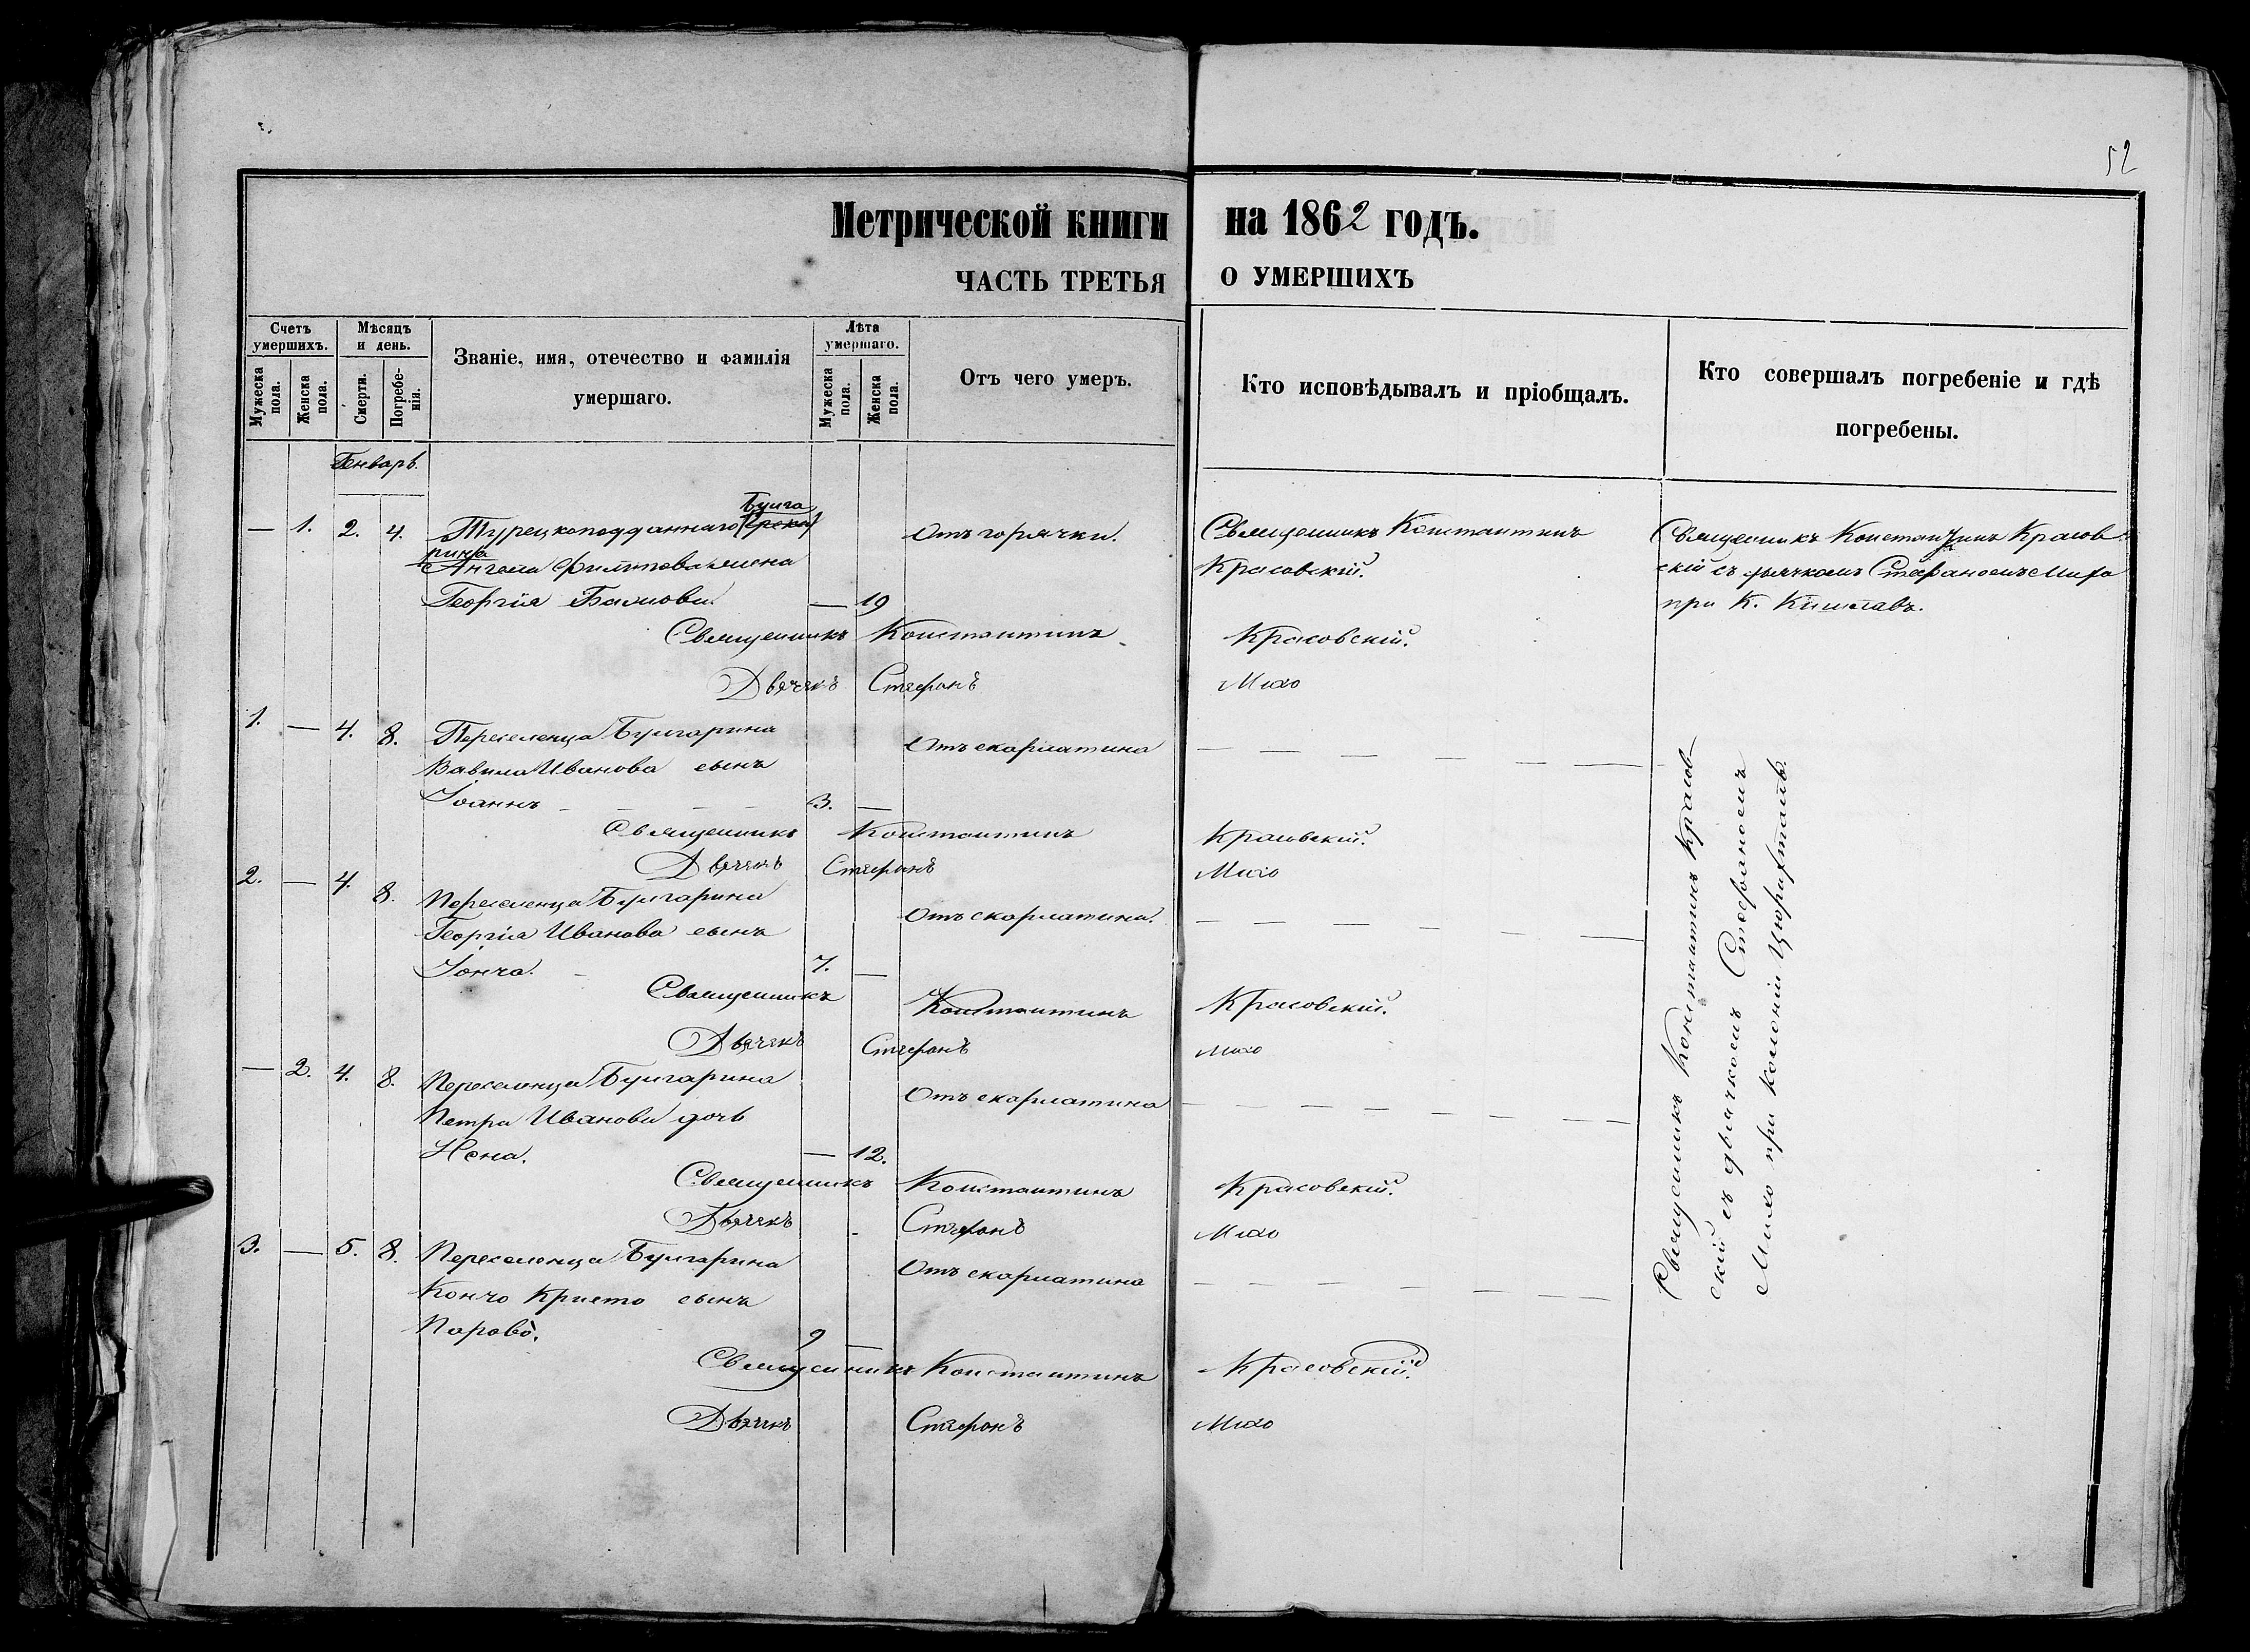 52
Метрической книги на 1862 годъ.
ЧАСТЬ ТРЕТЬЯ О УМЕРШИХЪ
Счетъ умершихъ.
Мужеска пола.
Женска пола.
Мѣсяцъ и день.
Смерти.
Погребенія.
Званіе, имя, отечество и фамилія
умершаго.
Лѣта умершаго.
Мужеска пола.
Женска пола.
Отъ чего умеръ.
Кто исповѣдывалъ и пріобщалъ.
Кто совершалъ погребеніе и гдѣ
погребены.
Генварь.
Булга
— 1. 2. 4. Турецкоподданнаго Отъ горячки. Священникъ Константинъ Священникъ Константинъ Красов-
рина
Ангела Филипова жена Красовскій. скій съ дьячкомъ Стефаномъ Михо
Георгія — 19 при К.
Священникъ Константинъ Красовскій.
Дьячекъ Стефанъ Михо
1. — 4. 8. Переселенца Булгарина Отъ скарлатина — — — — — —
Вавила Иванова сынъ
Іоаннъ — — — — 3. —
Священникъ Константинъ Красовскій.
Дьячекъ Стефанъ Михо
2. — 4. 8. Переселенца Булгарина Отъ скарлатина. — — — — — —
Георгія Иванова сынъ
Іонча. — 7. —
Священникъ Константинъ Красовскій.
Дьячекъ Стефанъ Михо
— 2. 4. 8. Переселенца Булгарина Отъ скарлатина — — — — — —
Петра Иванова дочь
Нена. — 12.
Священникъ Константинъ Красовскій.
Дьячекъ Стефанъ Михо
3. — 5. 8. Переселенца Булгарина Отъ скарлатина — — — — — —
Кончо Кристо сынъ
9 —
Священникъ Константинъ Красовскій.
Дьячекъ Стефанъ Михо
Священникъ Константинъ Красов-
скій съ дьячкомъ Стефаномъ
Михо при колоніи